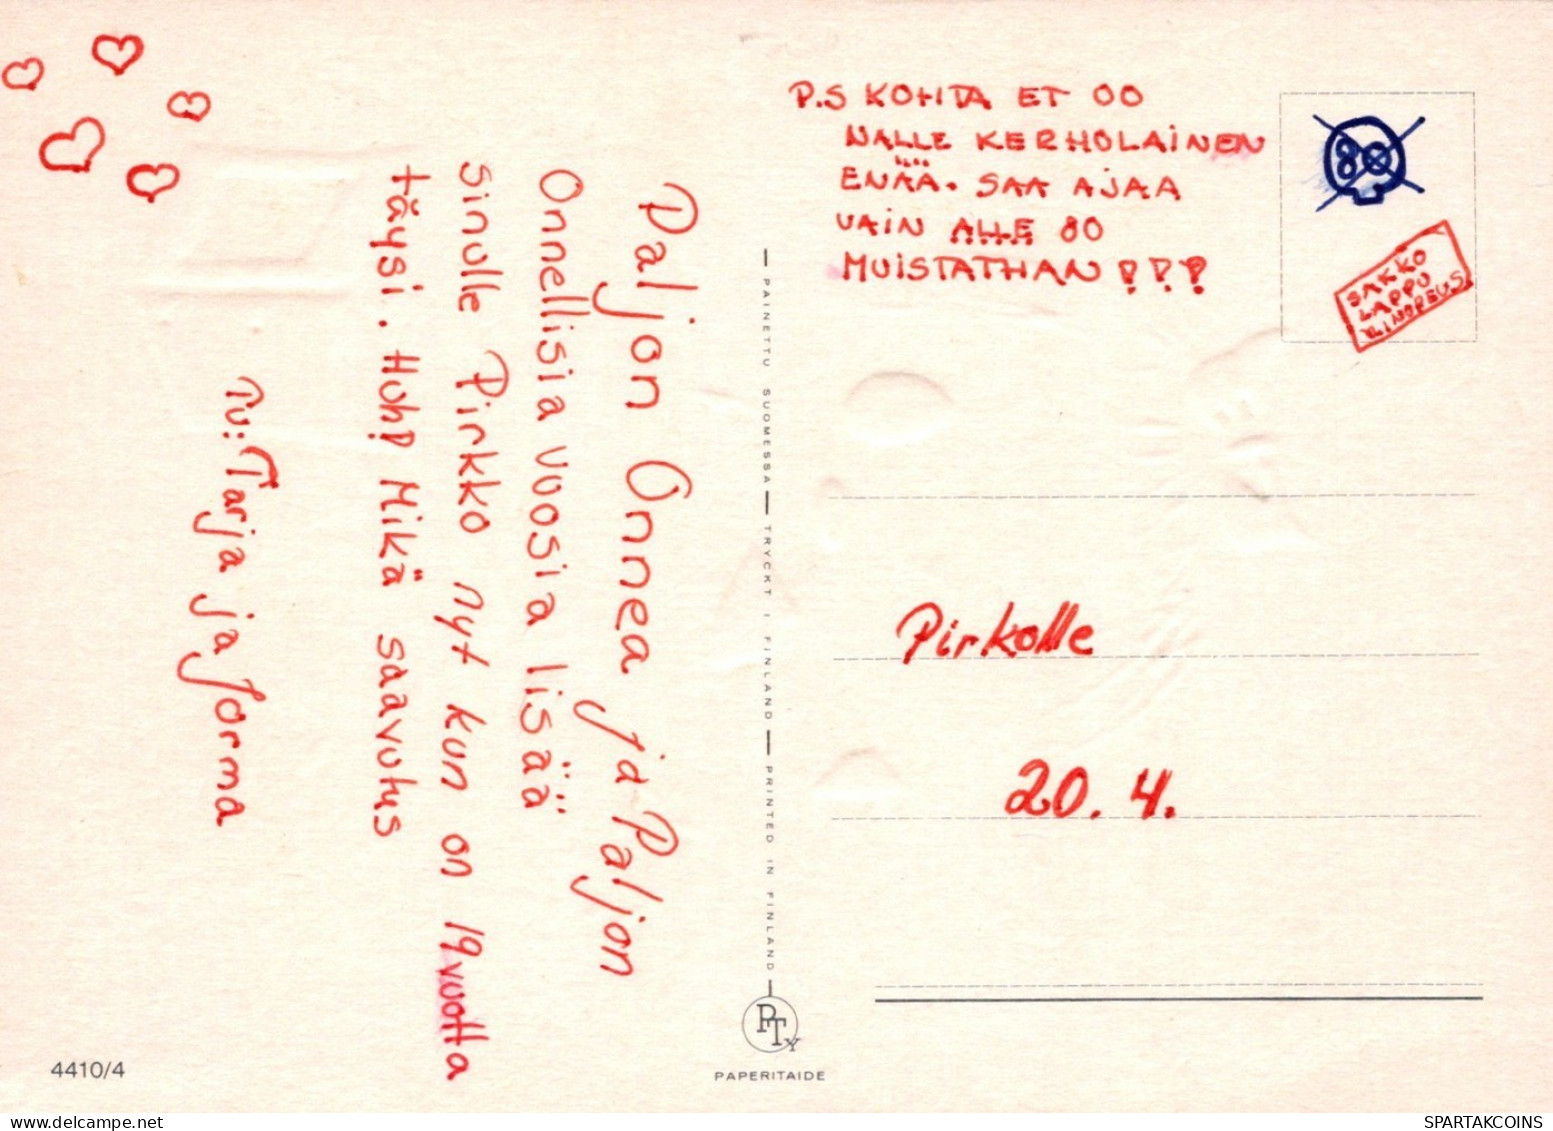 Paljon Onnea ja Paljon
Onnellisia vuosia lisää
sinulle Pirkko nyt kun on 19 vuotta
täysi. Huh! Mikä saavutus
Tv: Tarja ja Jorma
P.S KOHTA ET OO
NALLE KERHOLAiNEN
ENÄÄ. SAA AJAA
VAiN ALLE 80
MUiSTATHAN ???
80
SAKKO
LAPPU
Pirkolle
20. 4.
PAINETTU SUOMESSA — TRYCKT I FINLAND — PRINTED IN FINLAND
PTy
PAPERITAIDE
4410/4
SPARTAKCOINS